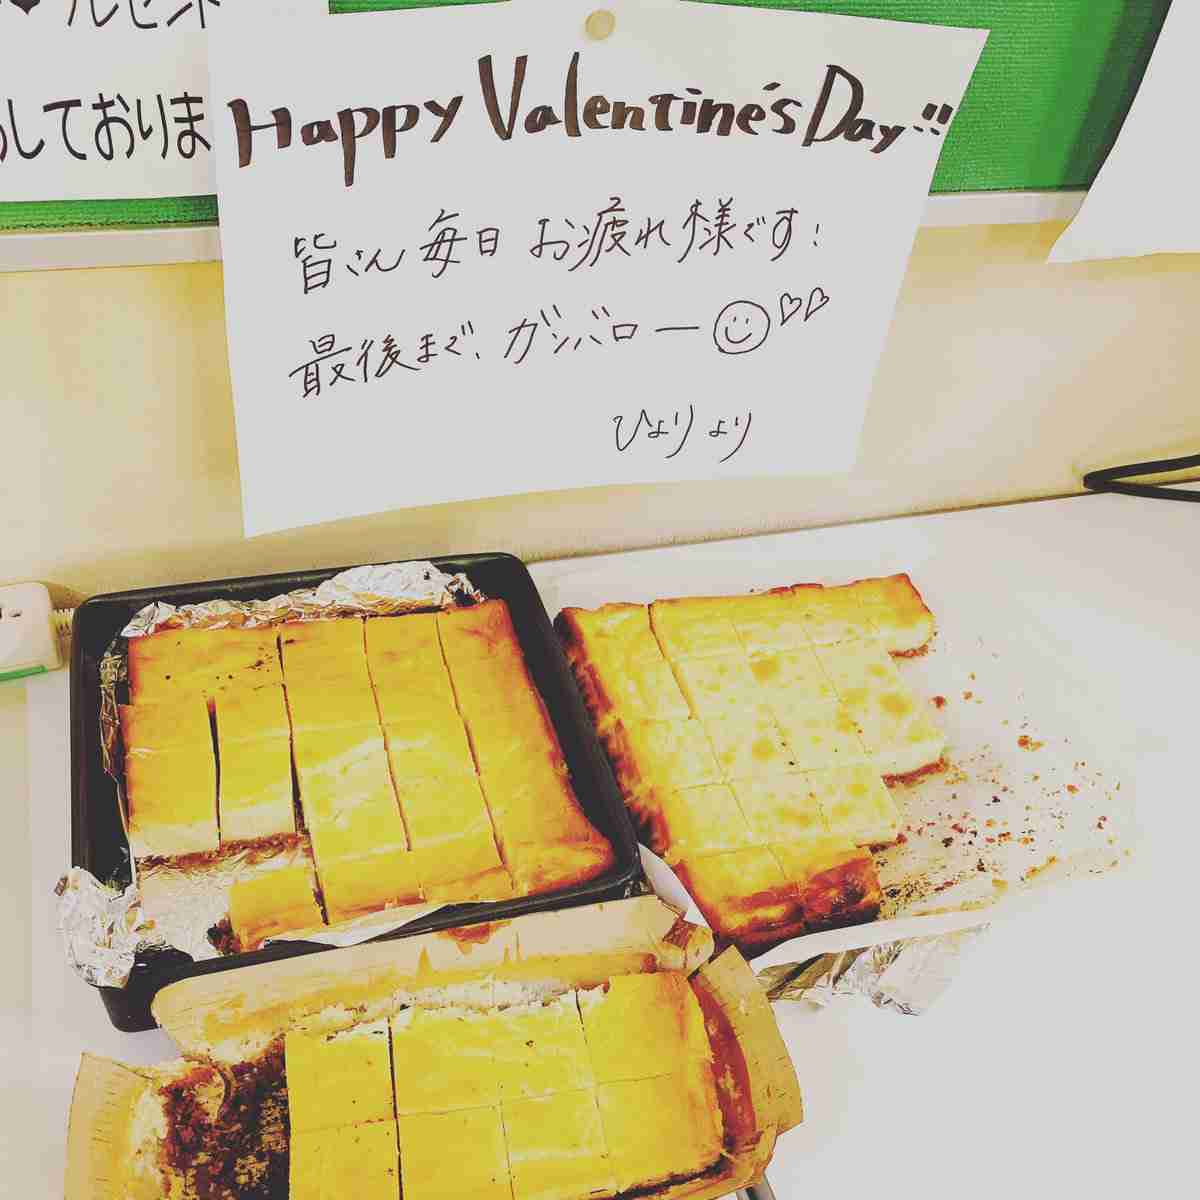 ルセット
しております
Happy Valentine's Day!!
皆さん毎日お疲れ様です!
最後まで、ガンバロー
ひよりより